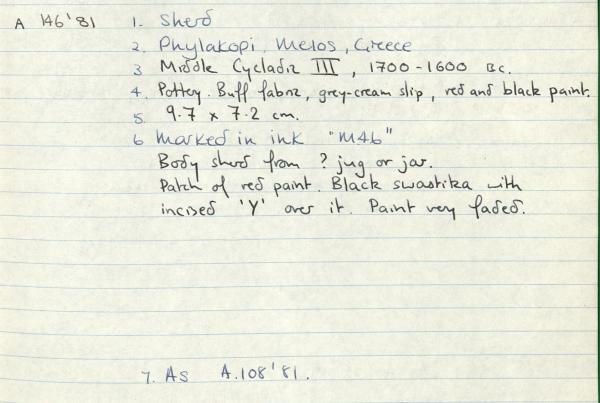 A 146'81 1. Sherd
2. Phylakopi, Melos, Greece
3 Middle Cycladic III, 1700-1600 BC.
4. Pottery. Buff fabric, grey-cream slip, red and black paint.
5. 9.7 x 7.2 cm.
6 Marked in ink "M46"
Body sherd from ? jug or jar.
Patch of red paint. Black swastika with
incised 'Y' over it. Paint very faded.
7. As A.108'81.